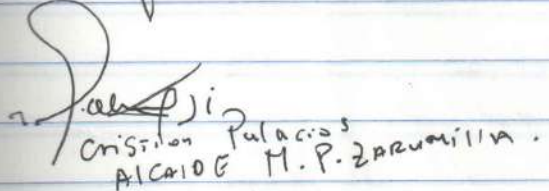 Cristian Palacios
ALCAIDE M.P. ZARUMILLA.